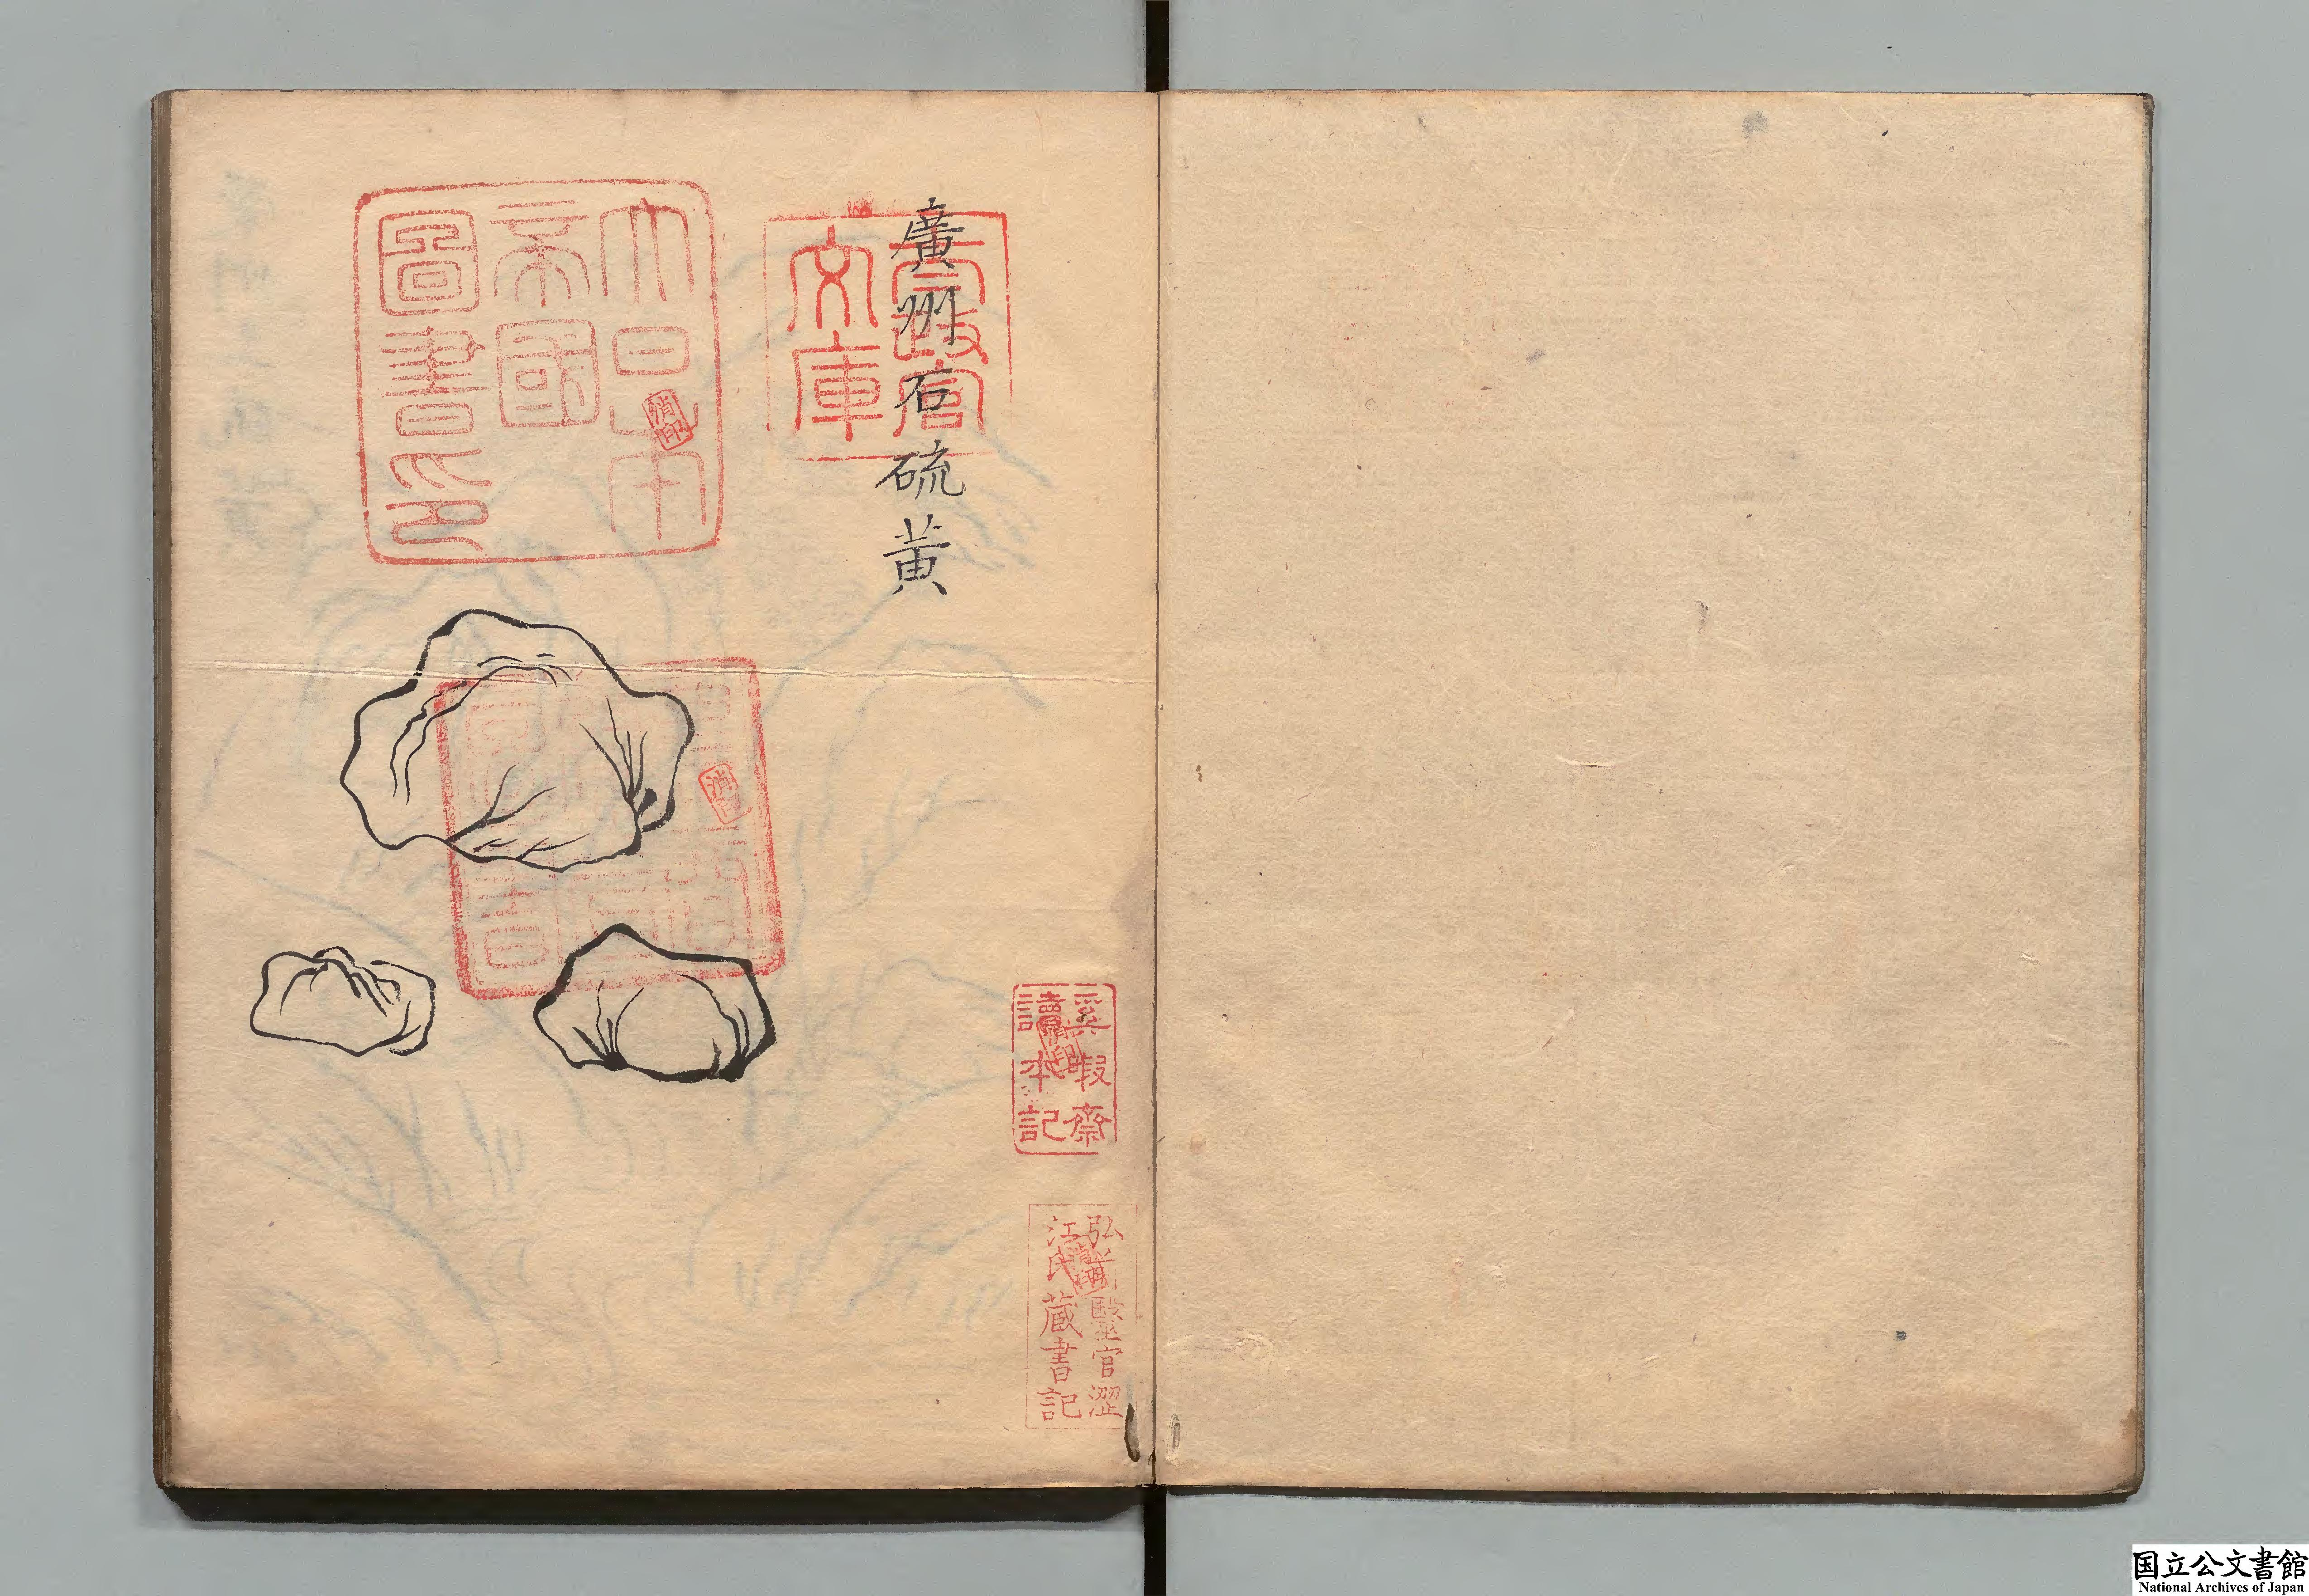 廣州石硫黃
太政官
文庫
大日本
帝國
圖書印
消印
消印
奚暇齋
讀本記
弘前醫官澀
江氏藏書記
国立公文書館
National Archives of Japan